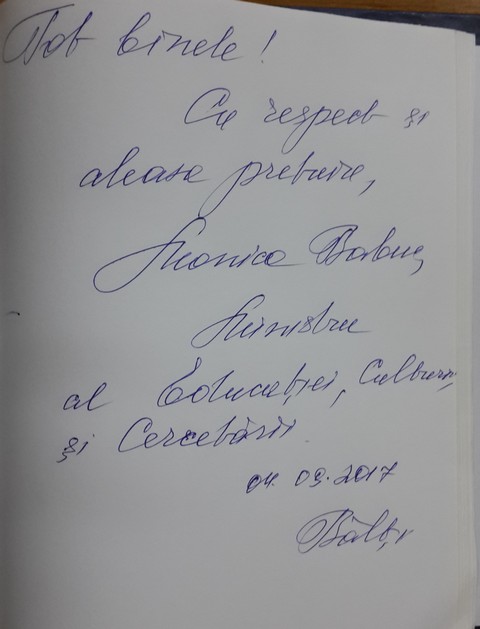 Tot binele!
Cu respect și
aleasă prețuire,
Monica Babuc,
Ministru
al Educației, Culturii,
și Cercetării
04.09.2017
Bălți